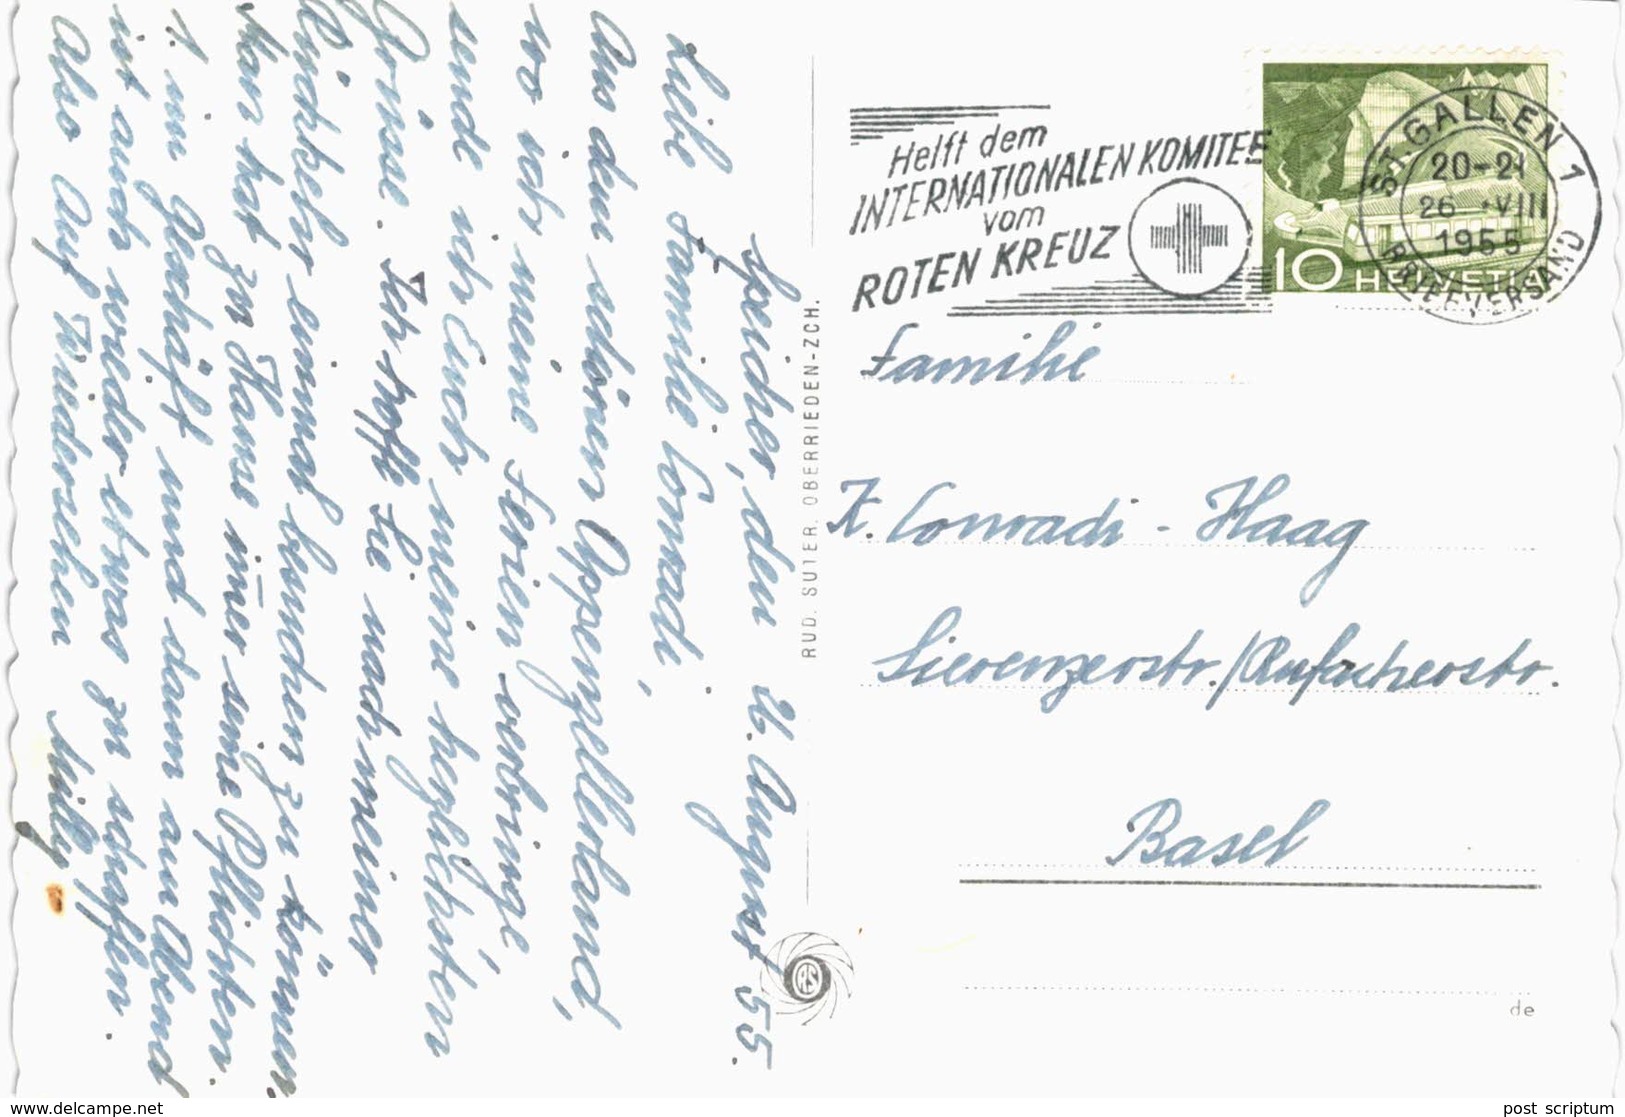 Speicher, den 26. August 55.
Liebe Familie Conradi,
Aus dem schönen Appenzellerland,
wo ich meine Ferien verbringe,
sende ich Euch meine herzlichsten
Grüsse. Ich hoffe Sie nach meiner
Rückkehr einmal besuchen zu können.
Man hat zu Hause immer seine Pflichten
1. im Geschäft und dann am Abend
ist auch wieder etwas zu schaffen.
Also Auf Wiedersehen Milly
RUD. SUTER, OBERRIEDEN-ZCH.
RS
Helft dem
INTERNATIONALEN KOMITEE
vom
ROTEN KREUZ
ST. GALLEN 1
20-21
26. VIII
1955
BRIEFVERSAND
10 HELVETIA
Familie
K. Conradi - Haag
Sierenzerstr./Rufacherstr.
Basel
de
www.delcampe.net
post_scriptum